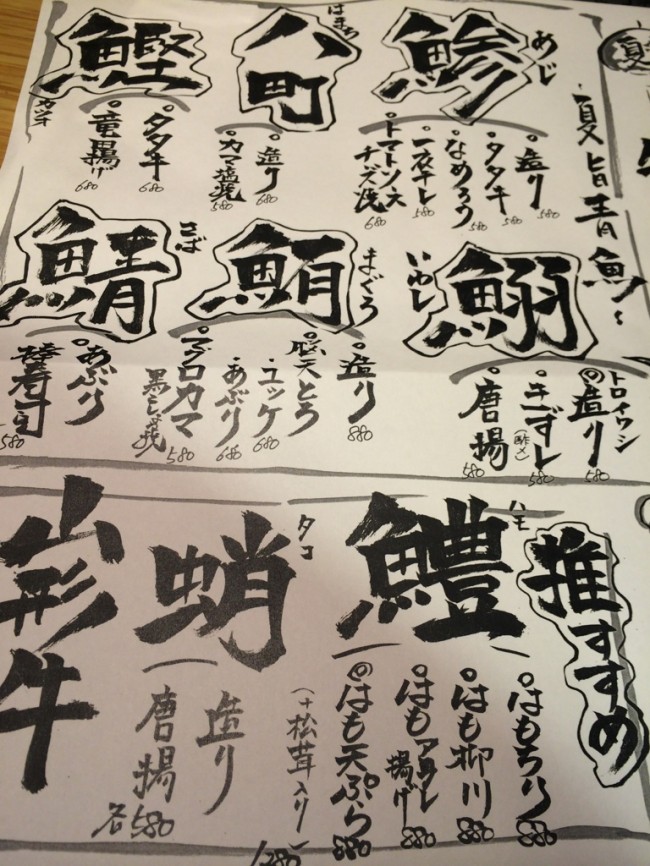 夏旨青魚〜
鯵
あじ
造り 580
タタキ 580
なめろう 580
一夜干し 580
トマトソース
チーズ焼 680
八町
はまち
造り 680
カマ塩焼 580
鰹
カツヲ
タタキ 680
竜田揚げ 580
鰯
いわし
トロイワシ
造り 580
きずし
(酢〆) 580
唐揚 580
鮪
まぐろ
造り 880
脳天とろ 680
ユッケ 680
あぶり 680
マグロカマ
黒こしょう焼 580
鯖
さば
あぶり
棒寿司 580
推すすめ
鱧
ハモ
はもちり 880
はも柳川 880
はもアラレ
揚げ 880
はも天ぷら 880
(+松茸入り) 1280
蛸
タコ
造り
唐揚
各580
山形牛